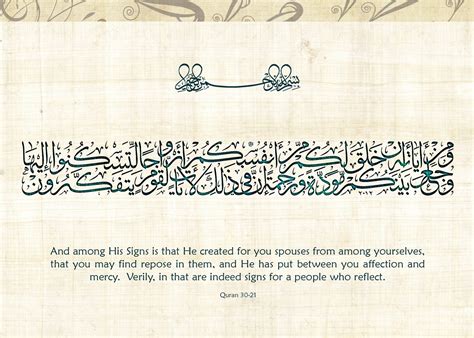 بسم الله الرحمن الرحيم
ومن آياته أن خلق لكم من أنفسكم أزواجا لتسكنوا إليها
وجعل بينكم مودة ورحمة إن في ذلك لآيات لقوم يتفكرون
And among His Signs is that He created for you spouses from among yourselves,
that you may find repose in them, and He has put between you affection and
mercy. Verily, in that are indeed signs for a people who reflect.
Quran 30-21